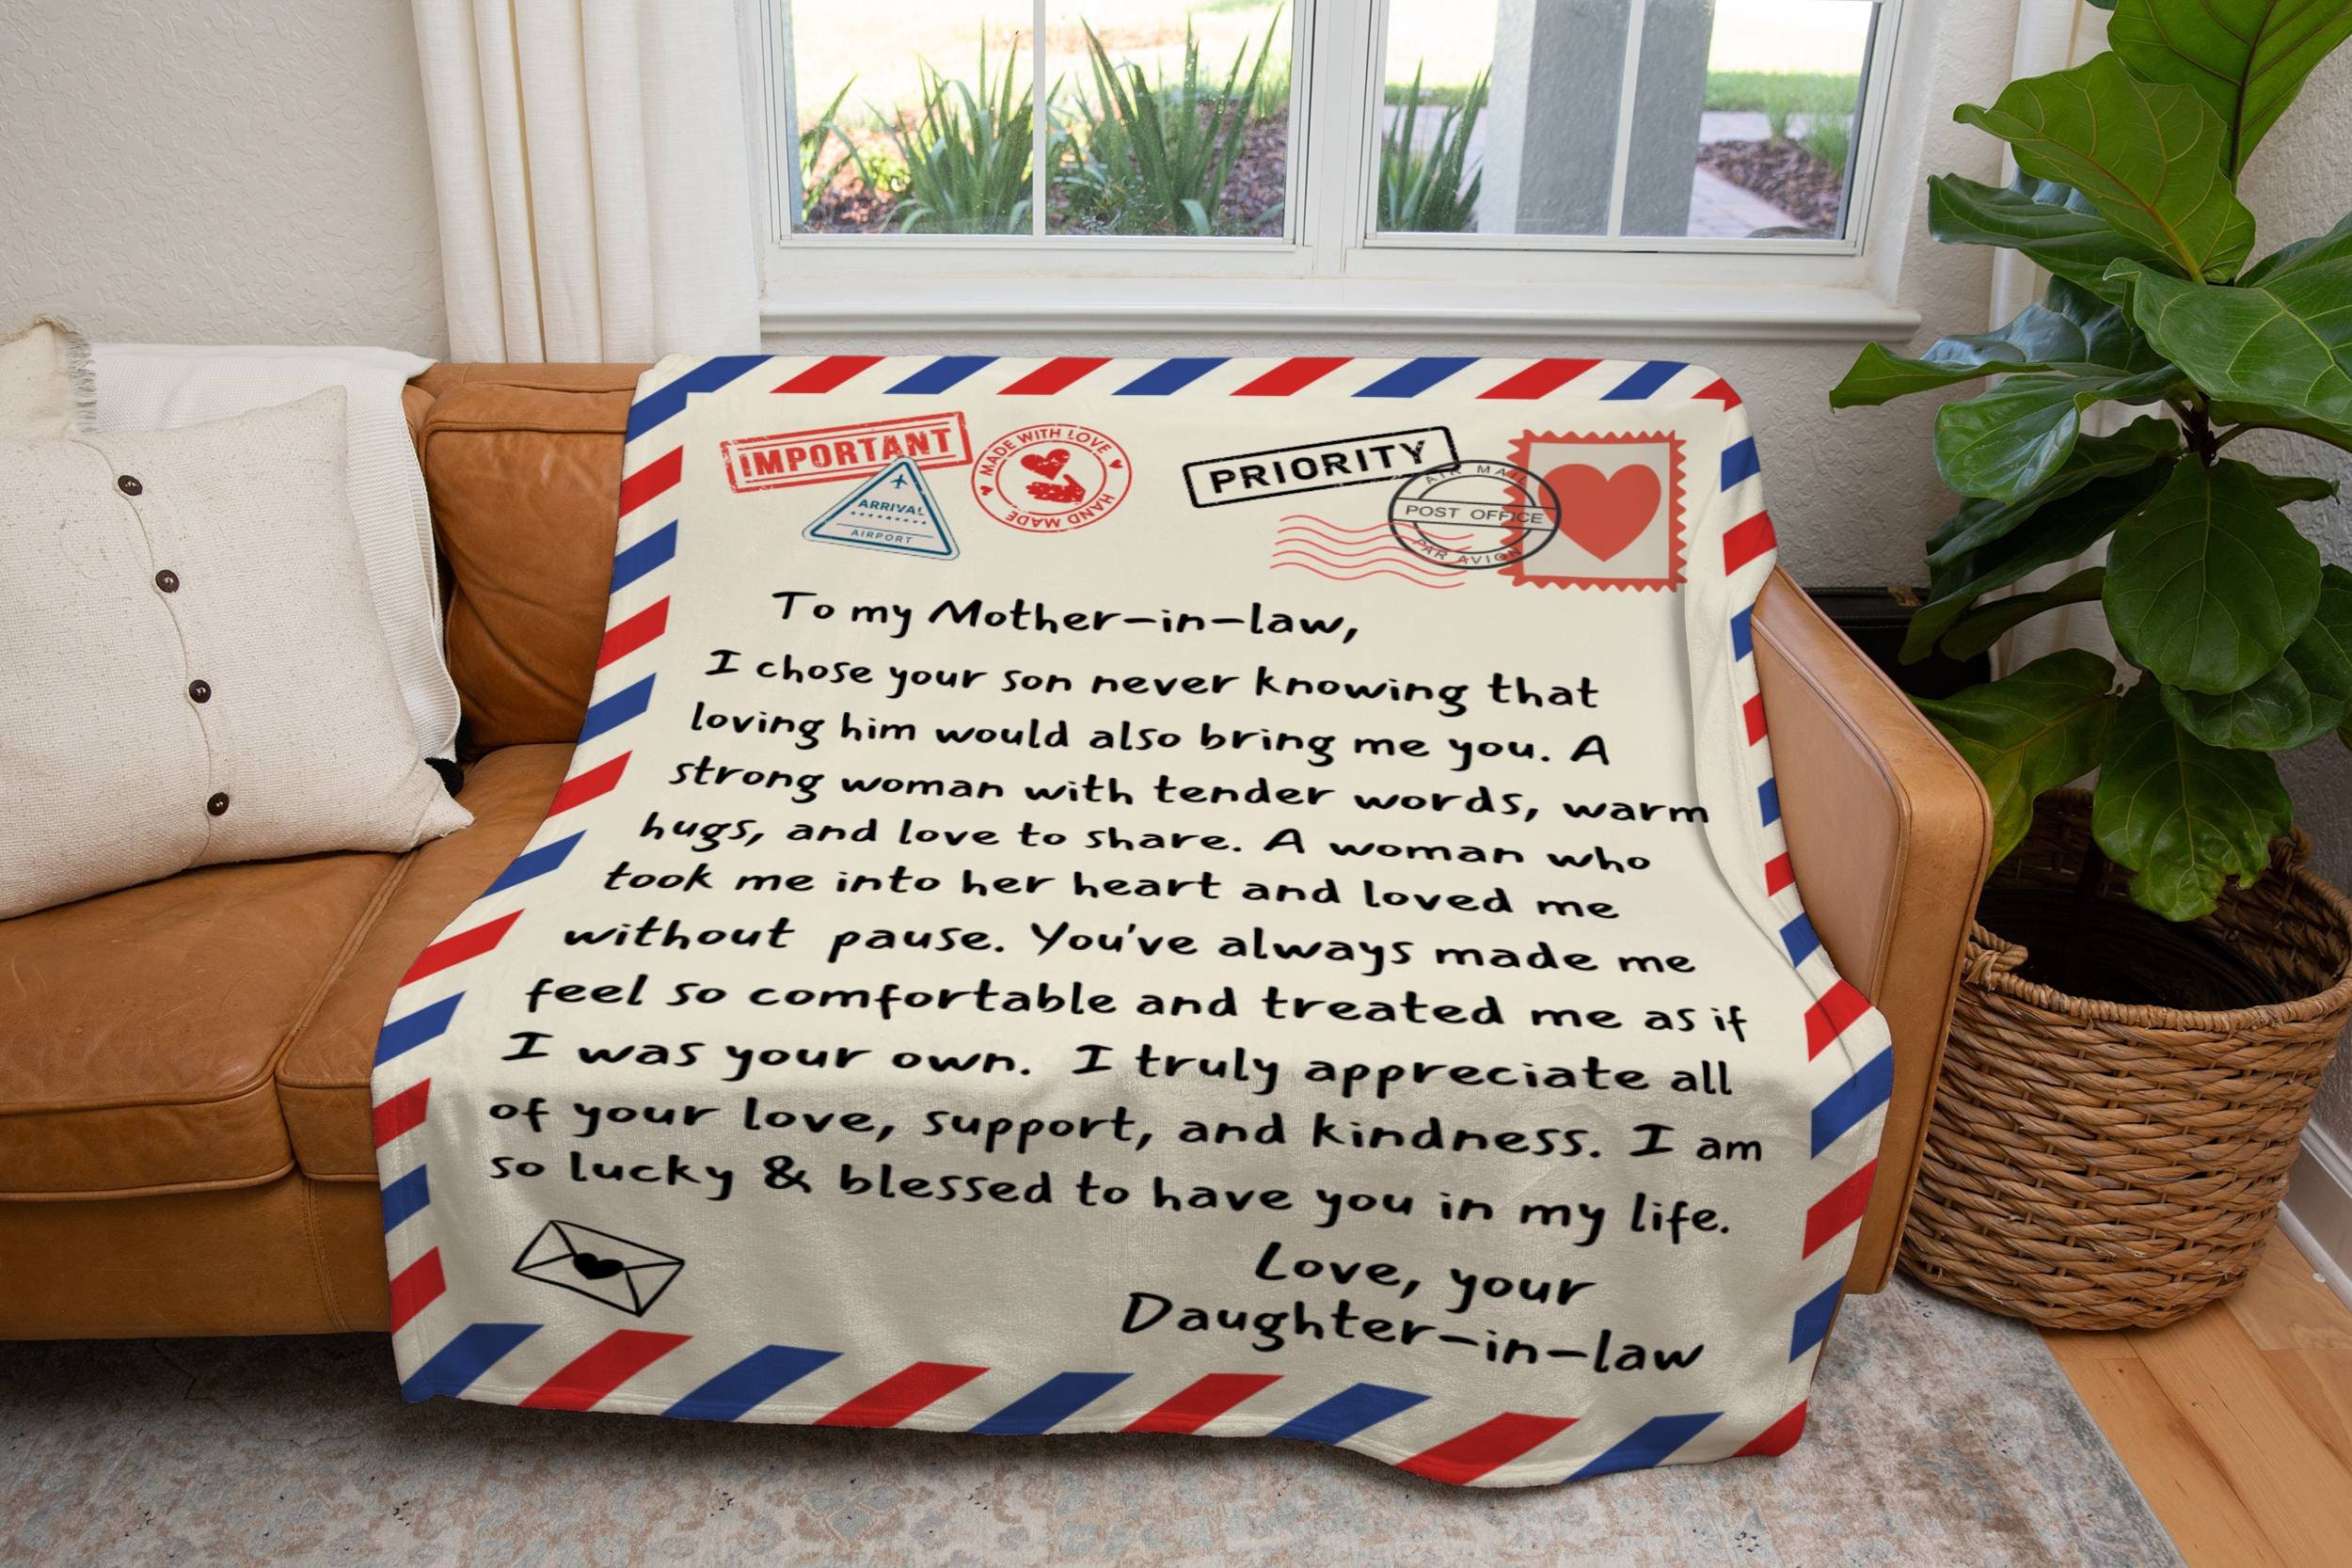 IMPORTANT
MADE WITH LOVE
HAND MADE
ARRIVAL
AIRPORT
PRIORITY
AIR MAIL
POST OFFICE
PAR AVION
To my Mother-in-law,
I chose your son never knowing that
loving him would also bring me you. A
strong woman with tender words, warm
hugs, and love to share. A woman who
took me into her heart and loved me
without pause. You've always made me
feel so comfortable and treated me as if
I was your own. I truly appreciate all
of your love, support, and kindness. I am
so lucky & blessed to have you in my life.
Love, your
Daughter-in-law